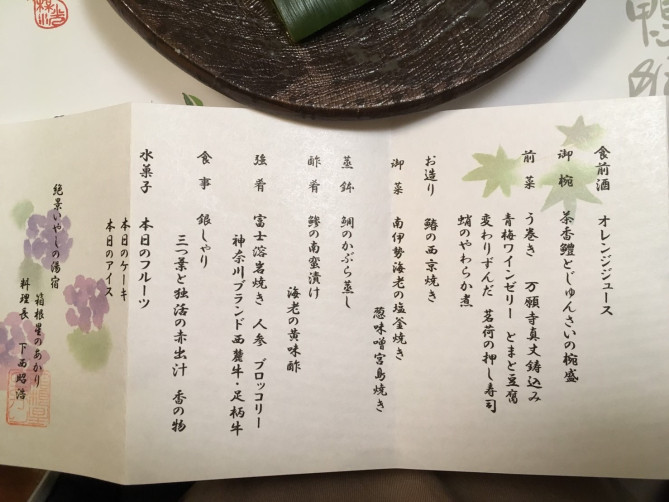 食前酒　オレンジジュース
御椀　茶香鱧とじゅんさいの椀盛
前菜　う巻き　万願寺真丈鋳込み
青梅ワインゼリー　とまと豆腐
変わりずんだ　茗荷の押し寿司
蛸のやわらか煮
お造り　鰆の西京焼き
御菜　南伊勢海老の塩釜焼き
葱味噌宮島焼き
蒸鉢　鯛のかぶら蒸し
酢肴　鯵の南蛮漬け
海老の黄味酢
強肴　富士溶岩焼き　人参　ブロッコリー
神奈川ブランド西麓牛・足柄牛
食事　銀しゃり
三つ葉と独活の赤出汁　香の物
水菓子　本日のフルーツ
本日のケーキ
本日のアイス
絶景いやしの湯宿
箱根星のあかり
料理長　下西昭浩